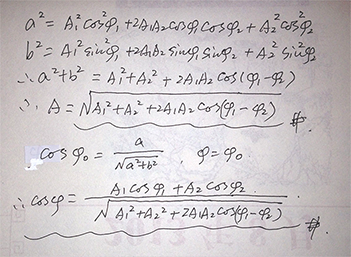 a² = A₁²cos²φ₁ + 2A₁A₂cosφ₁cosφ₂ + A₂²cos²φ₂
b² = A₁²sin²φ₁ + 2A₁A₂sinφ₁sinφ₂ + A₂²sin²φ₂
∴ a²+b² = A₁²+A₂² + 2A₁A₂cos(φ₁-φ₂)
∴ A = √(A₁²+A₂²+2A₁A₂cos(φ₁-φ₂)) #.
∴ cosφ₀ = a/√(a²+b²) , φ=φ₀
∴ cosφ = (A₁cosφ₁+A₂cosφ₂)/√(A₁²+A₂²+2A₁A₂cos(φ₁-φ₂)) #.